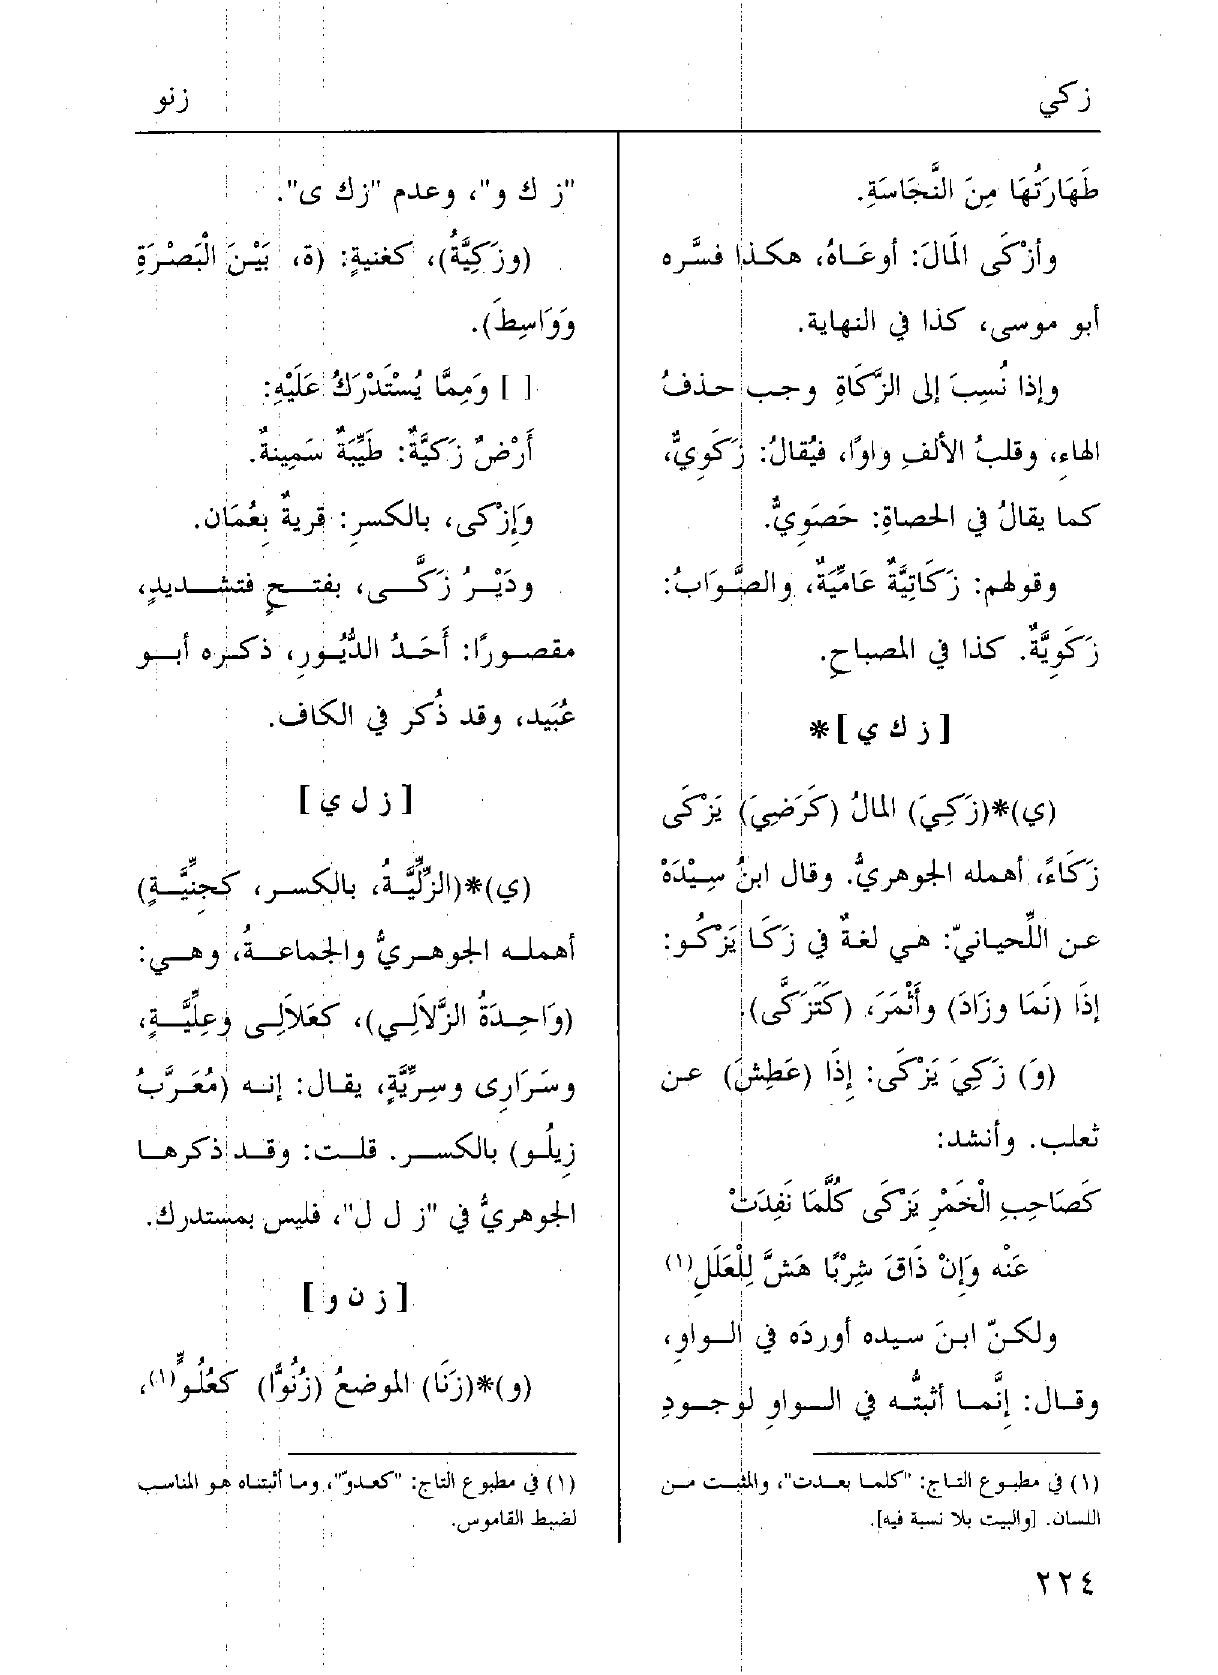 زكي
زنو
طَهَارَتُهَا مِنَ النَّجَاسَةِ.
وأزْكَى المَالَ: أوعَاهُ، هكذا فسَّره
أبو موسى، كذا في النهاية.
وإذا نُسِبَ إلى الزَّكَاةِ وجب حذفُ
الهاءِ، وقلبُ الألفِ واوًا، فيُقالُ: زَكَوِيٌّ،
كما يقالُ في الحصاةِ: حَصَوِيٌّ.
وقولهم: زَكَاتِيَّةٌ عَامِّيَةٌ، والصَّوَابُ:
زَكَوِيَّةٌ. كذا في المصباحِ.
[ ز ك ي ]*
(ي)*(زَكِيَ) المالُ (كَرَضِيَ) يَزْكَى
زَكَاءً، أهمله الجوهريُّ. وقال ابنُ سِيْدَهْ
عن اللِّحيانيّ: هي لغةٌ في زَكَا يَزْكُو:
إذَا (نَمَا وزَادَ) وأَثْمَرَ، (كَتَزَكَّى).
(وَ) زَكِيَ يَزْكَى: إذَا (عَطِشَ) عن
ثعلب. وأنشد:
كَصَاحِبِ الْخَمْرِ يَزْكَى كُلَّمَا نَفِدَتْ
عَنْه وَإِنْ ذَاقَ شِرْبًا هَشَّ لِلْعَلَلِ(١)
ولكنّ ابنَ سيده أوردَه في الواوِ،
وقال: إِنَّما أثبتُّه في الواوِ لوجودِ
(١) في مطبوع التاج: "كلما بعدت"، والمثبت من
اللسان. [والبيت بلا نسبة فيه].
"ز ك و"، وعدم "زك ى".
(وزَكِيَّةُ)، كغنيةٍ: (ة، بَيْنَ الْبَصْرَةِ
وَوَاسِطَ).
[ ] وَمِمَّا يُسْتَدْرَكُ عَلَيْهِ:
أَرْضٌ زَكيَّةٌ: طَيِّبَةٌ سَمِينةٌ.
وَإِزْكى، بالكسرِ: قريةٌ بِعُمَان.
ودَيْرُ زَكَّى، بفتحٍ فتشديدٍ،
مقصورًا: أَحَدُ الدُّيُورِ، ذكره أبو
عُبَيد، وقد ذُكر في الكاف.
[ ز ل ي ]
(ي)*(الزِّلِّيَّةُ، بالكسر، كجِنِّيَّةٍ)
أهمله الجوهريُّ والجماعةُ، وهي:
(وَاحِدَةُ الزَّلاَلِي)، كعَلاَلِى وَعِلِّيَّةٍ،
وسَرَارِى وسِرِّيَّةٍ، يقال: إنه (مُعَرَّبُ
زِيلُو) بالكسر. قلت: وقد ذكرها
الجوهريُّ في "ز ل ل"، فليس بمستدرك.
[ ز ن و ]
(و)*(زَنَا) الموضعُ (زُنُوًّا) كعُلُوٍّ(١)،
(١) في مطبوع التاج: "كعدوّ"، وما أثبتناه هو المناسب
لضبط القاموس.
٢٢٤